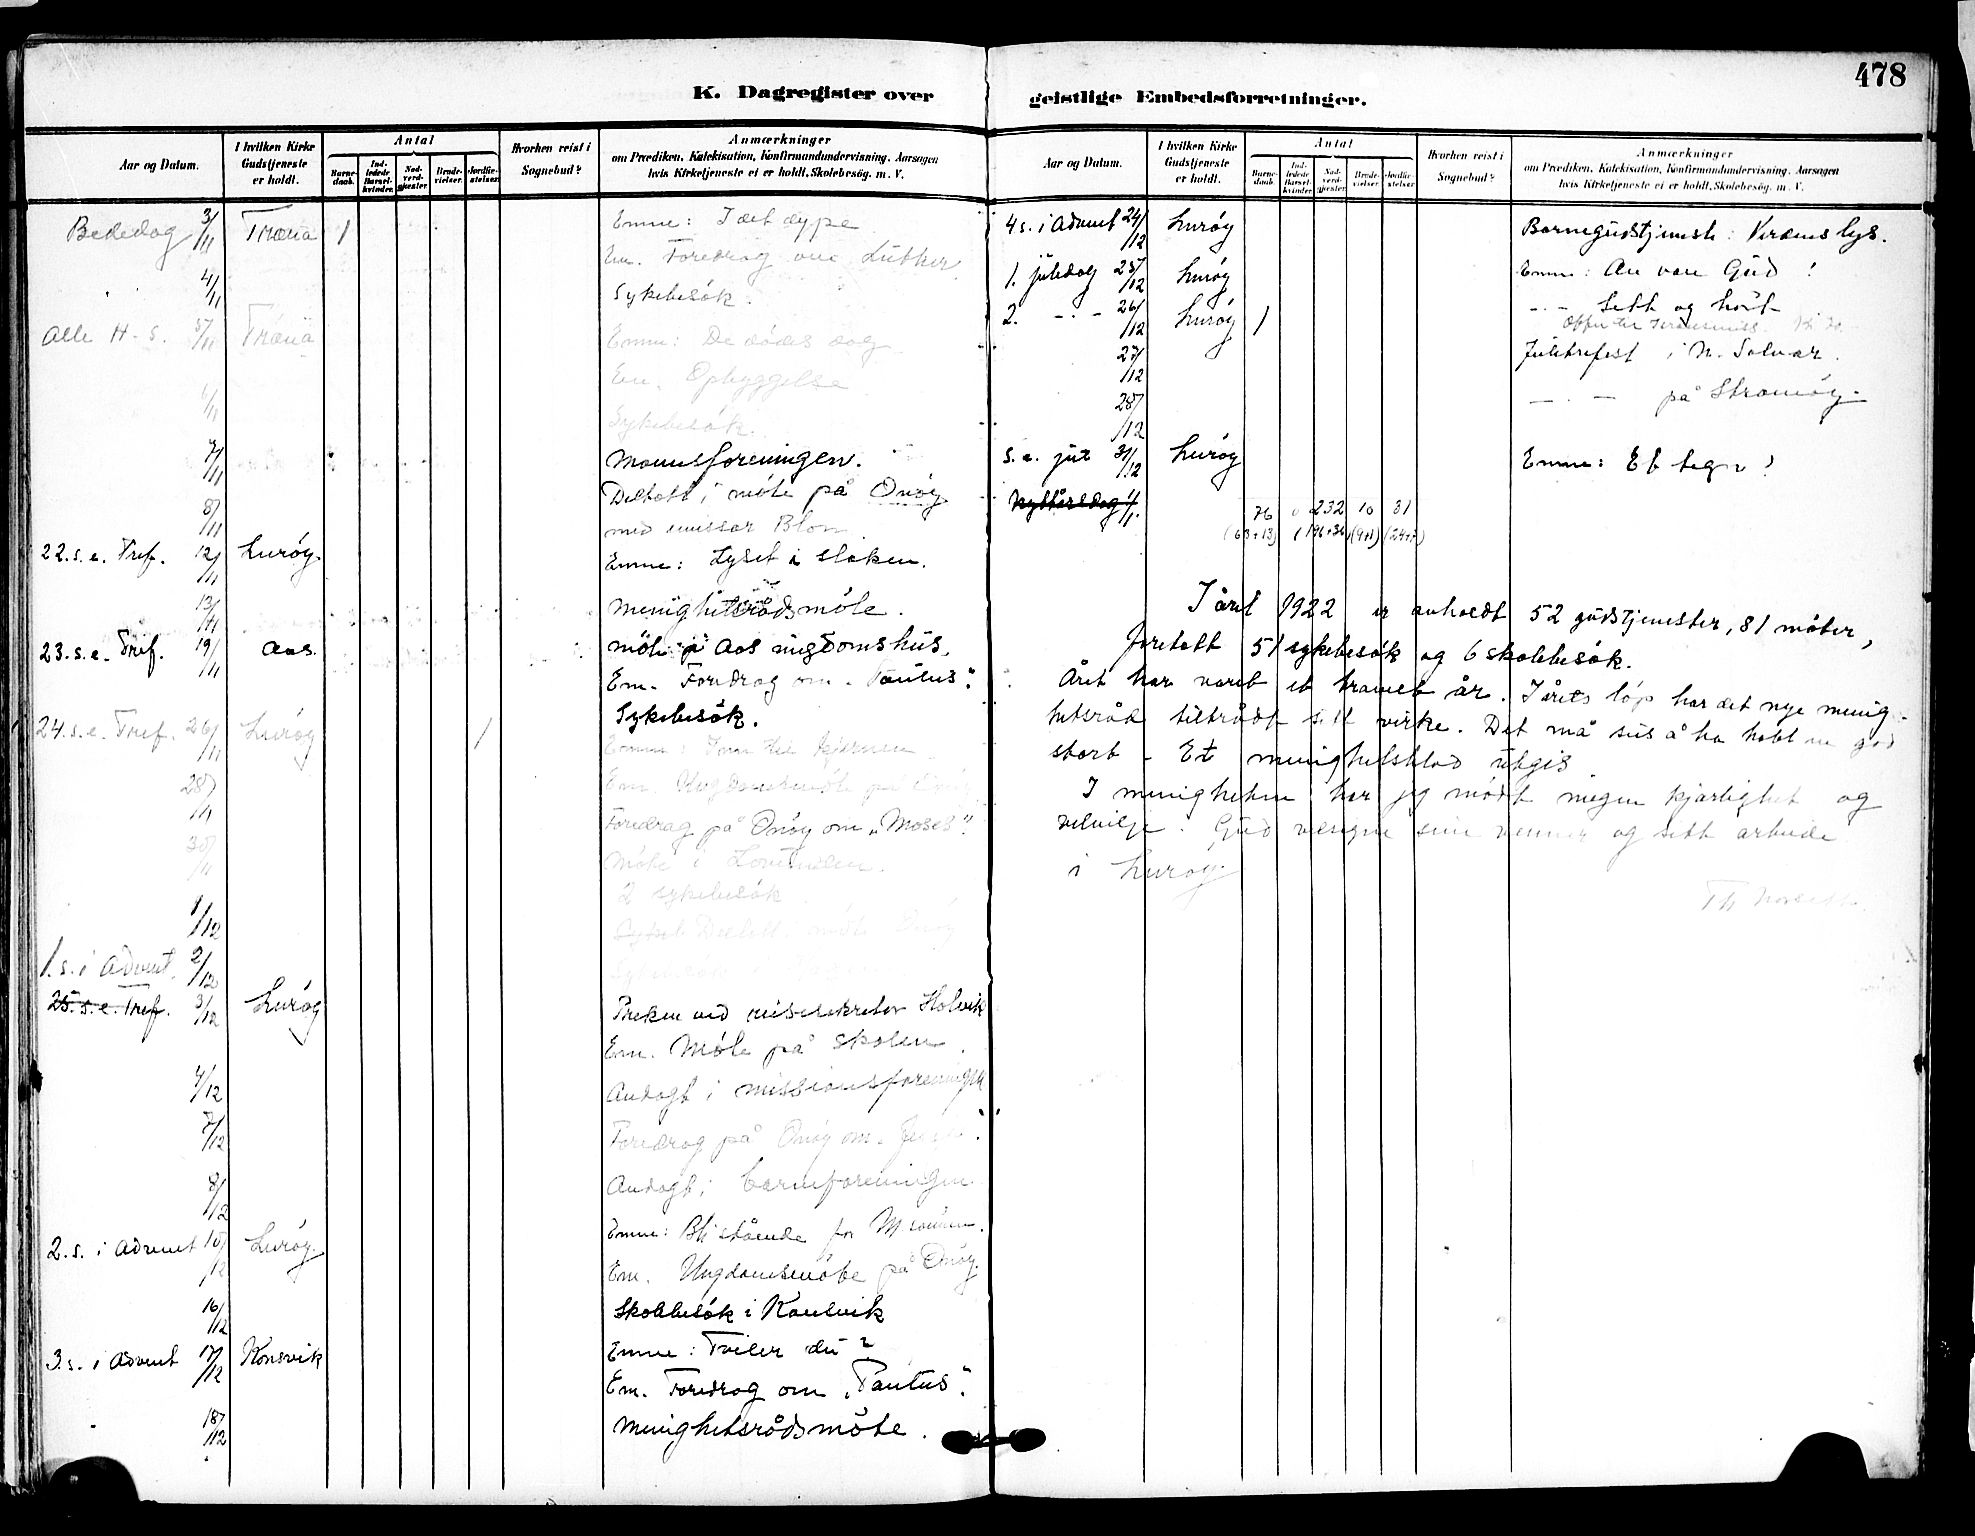 478
K. Dagregister over
Aar og Datum.
I hvilken Kirke Gudstjeneste er holdt.
Antal
Barnedaab.
Indledede Barselkvinder.
Nadverdgjester.
Brudevielser.
Jordfæstelser.
Hvorhen reist i Sognebud?
Anmærkninger
om Prædiken, Katekisation, Konfirmandundervisning, Aarsagen
hvis Kirketjeneste ei er holdt, Skolebesøg. m. V.
Bededag 3/11 Træna 1 Emne: I det dype
Em. Foredrag om Luther
4/11 Sykebesök.
Alle H. S. 5/11 Træna Emne: De dödes dag
Em. Opbyggelse
6/11 Sykebesök.
7/11 Mannsforeningen.
8/11 Deltatt i möte på Onöy
med emissær Blom
22. s. e. Tref. 12/11 Luröy. Emne: Lyset i staken.
13/11 Menighetsrådsmöte.
23. s. e. Tref. 19/11 Aas. Möte på Aas ungdomshus.
Em. Foredrag om "Paulus".
Sykebesök.
24. s. e. Tref. 26/11 Luröy 1 Emne:
Em. Ungdomsmöte på Onöy
28/11 Foredrag på Onöy om "Moses".
30/11 Möte i Lovunden.
2 sykebesök
1/12 Deltatt i möte Onöy
2/12 Sykebesök
1. s. i Advent
25. s. e. Tref. 3/12 Luröy Preken ved Holvik
Em. Möte på skolen.
4/12 Andagt i missionsforeningen
7/12 Foredrag på Onöy om
8/12 Andagt i barneforeningen
2. s. i Advent 10/12 Luröy. Emne: Bli stående for
Em. Ungdomsmöte på Onöy.
16/12 Skolebesök i Konsvik
3. s. i Advent 17/12 Konsvik Emne: Tviler du?
Em. Foredrag om "Paulus".
18/12 Menighetsrådsmöte.
geistlige Embedsforretninger.
Aar og Datum.
I hvilken Kirke Gudstjeneste er holdt.
Antal
Barnedaab.
Indledede Barselkvinder.
Nadverdgjester.
Brudevielser.
Jordfæstelser.
Hvorhen reist i Sognebud?
Anmærkninger
om Prædiken, Katekisation, Konfirmandundervisning, Aarsagen
hvis Kirketjeneste ei er holdt, Skolebesøg. m. V.
4 s. i Advent 24/12 Luröy Barnegudstjeneste: Verdens lys.
1. juledag 25/12 Luröy Emne: Ære være Gud!
2. -"- 26/12 Luröy 1 -"- Sett og hört
27/12 Juletrefest i N. Solvær.
28/12 -"- på Stramöy.
S. e. jul 31/12 Luröy Emne: Et tegn!
Nyttårsdag 1/1.
76 0 232 10 31
(63+13) (196+36) (9+1) (24+7)
I året 1922 er avholdt 52 gudstjenester, 81 möter,
foretatt 51 sykebesök og 6 skolebesök.
Året har vært et travelt år. I årets löp har det nye menig-
hetsråd tiltrådt sitt virke. Det må sies å ha hatt en god
start - Et menighetsblad utgis
I menigheten har jeg mödt megen kjærlighet og
velvilje. Gud velsigne sine venner og sitt arbeide
i Luröy.